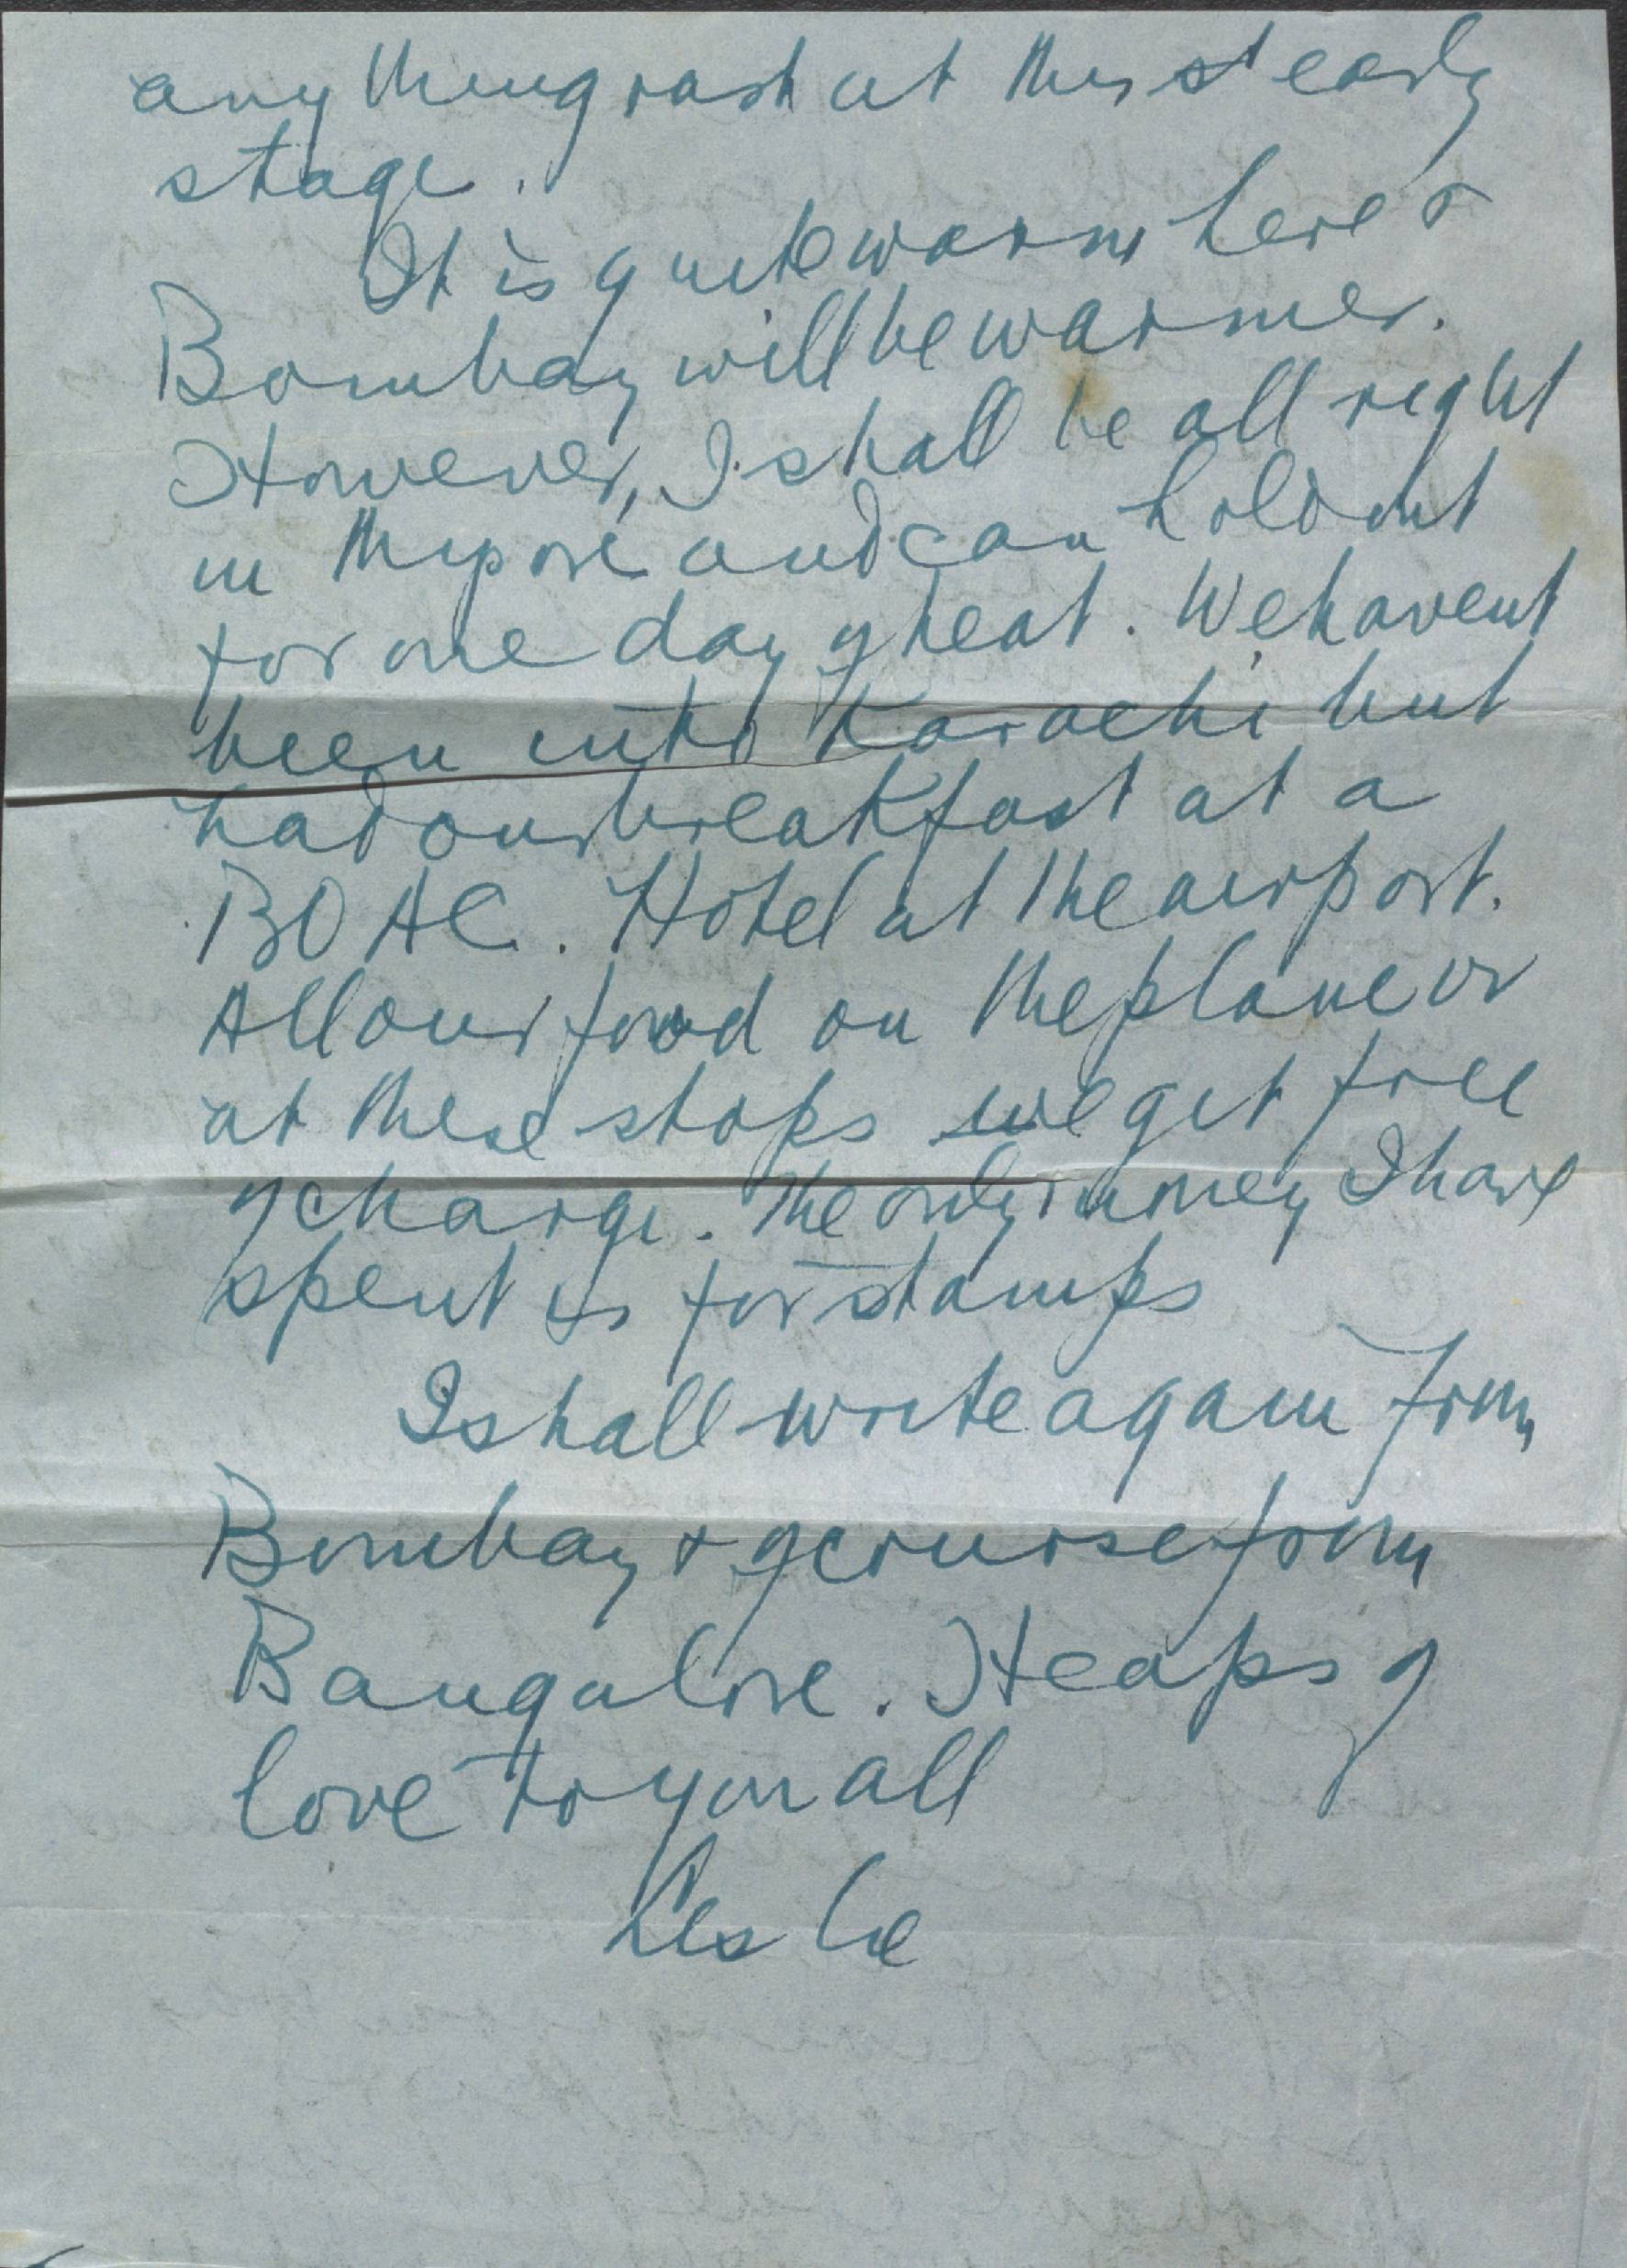 anything rash at this early
stage.
It is quite warm here &
Bombay will be warmer.
However, I shall be all right
in Mysore and can hold out
for one day of heat. We havent
been into Karachi but
had our breakfast at a
BOAC. Hotel at the airport.
All our food on the plane or
at these stops we get free
of charge. The only money I have
spent is for stamps
I shall write again from
Bombay & of course from
Bangalore. Heaps of
love to you all
Leslie